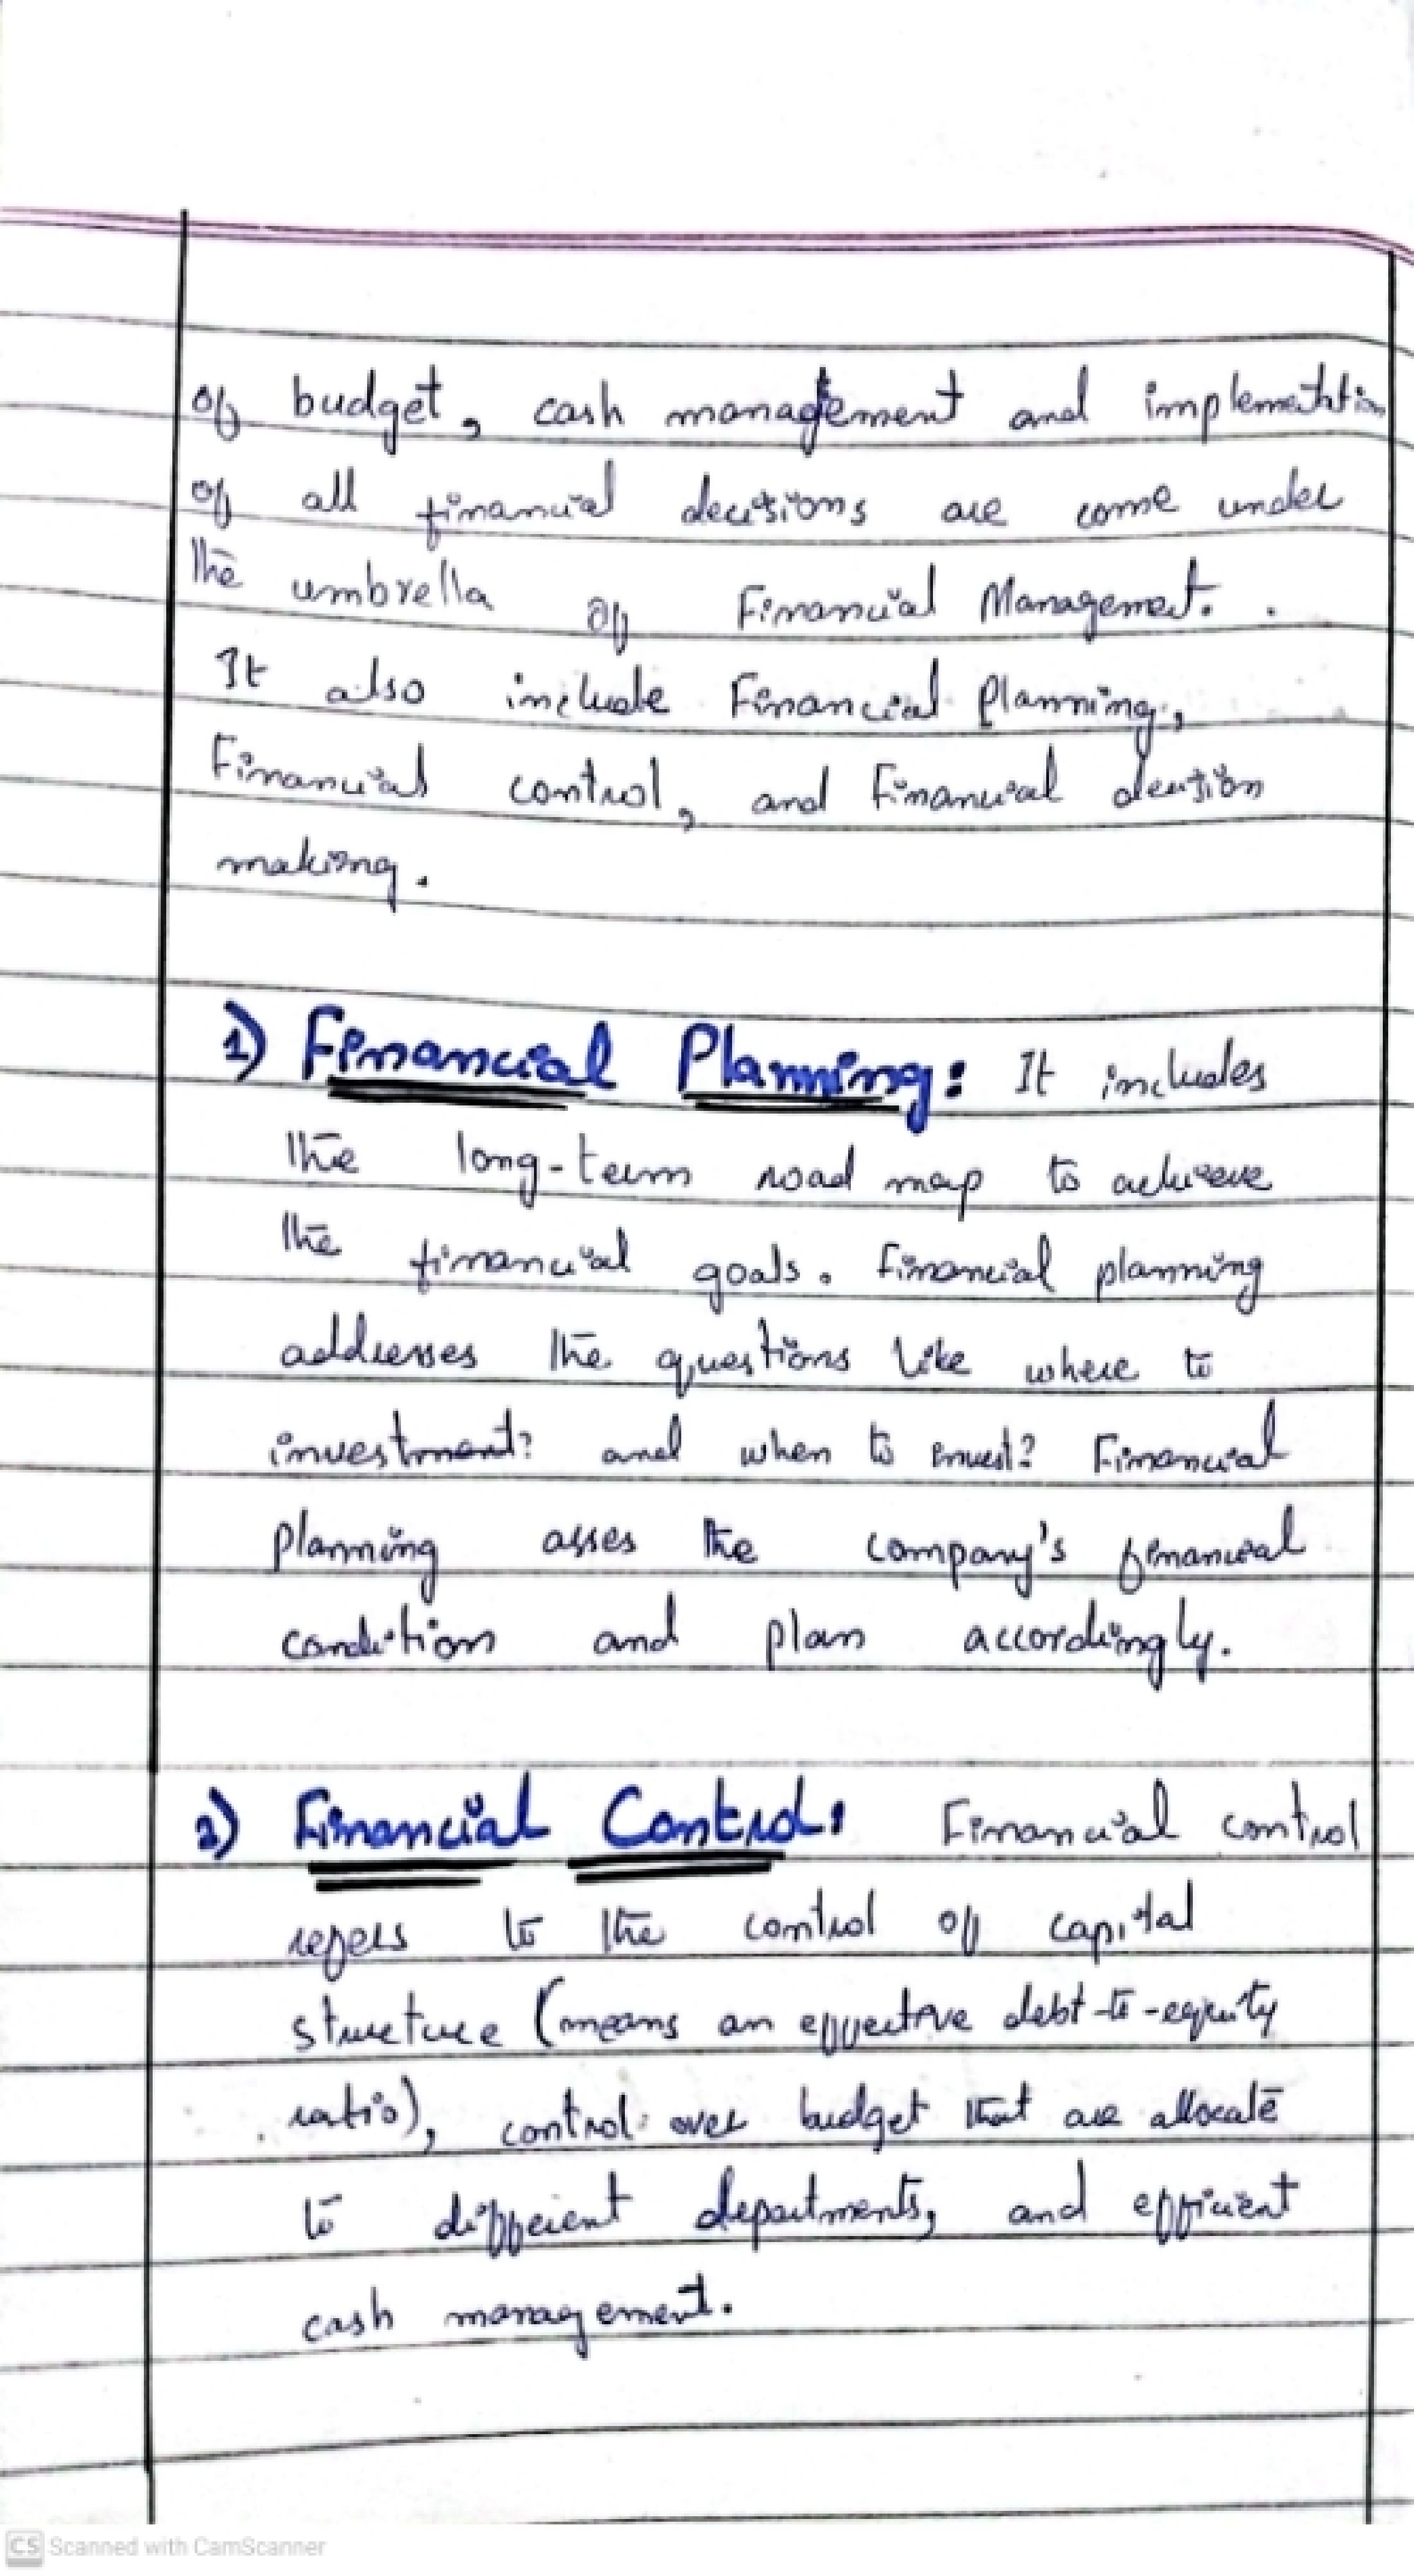 of budget, cash management and implementation
of all financial decisions are come under
the umbrella of Financial Management.
It also include Financial Planning,
Financial control, and Financial decision
making.
1) Financial Planning: It includes
the long-term road map to achieve
the financial goals. Financial planning
addresses the questions like where to
investment? and when to invest? Financial
planning asses the company's financial
condition and plan accordingly.
2) Financial Control: Financial control
refers to the control of capital
structure (means an effective debt-to-equity
ratio), control over budget that are allocate
to different departments, and efficient
cash management.
CS Scanned with CamScanner